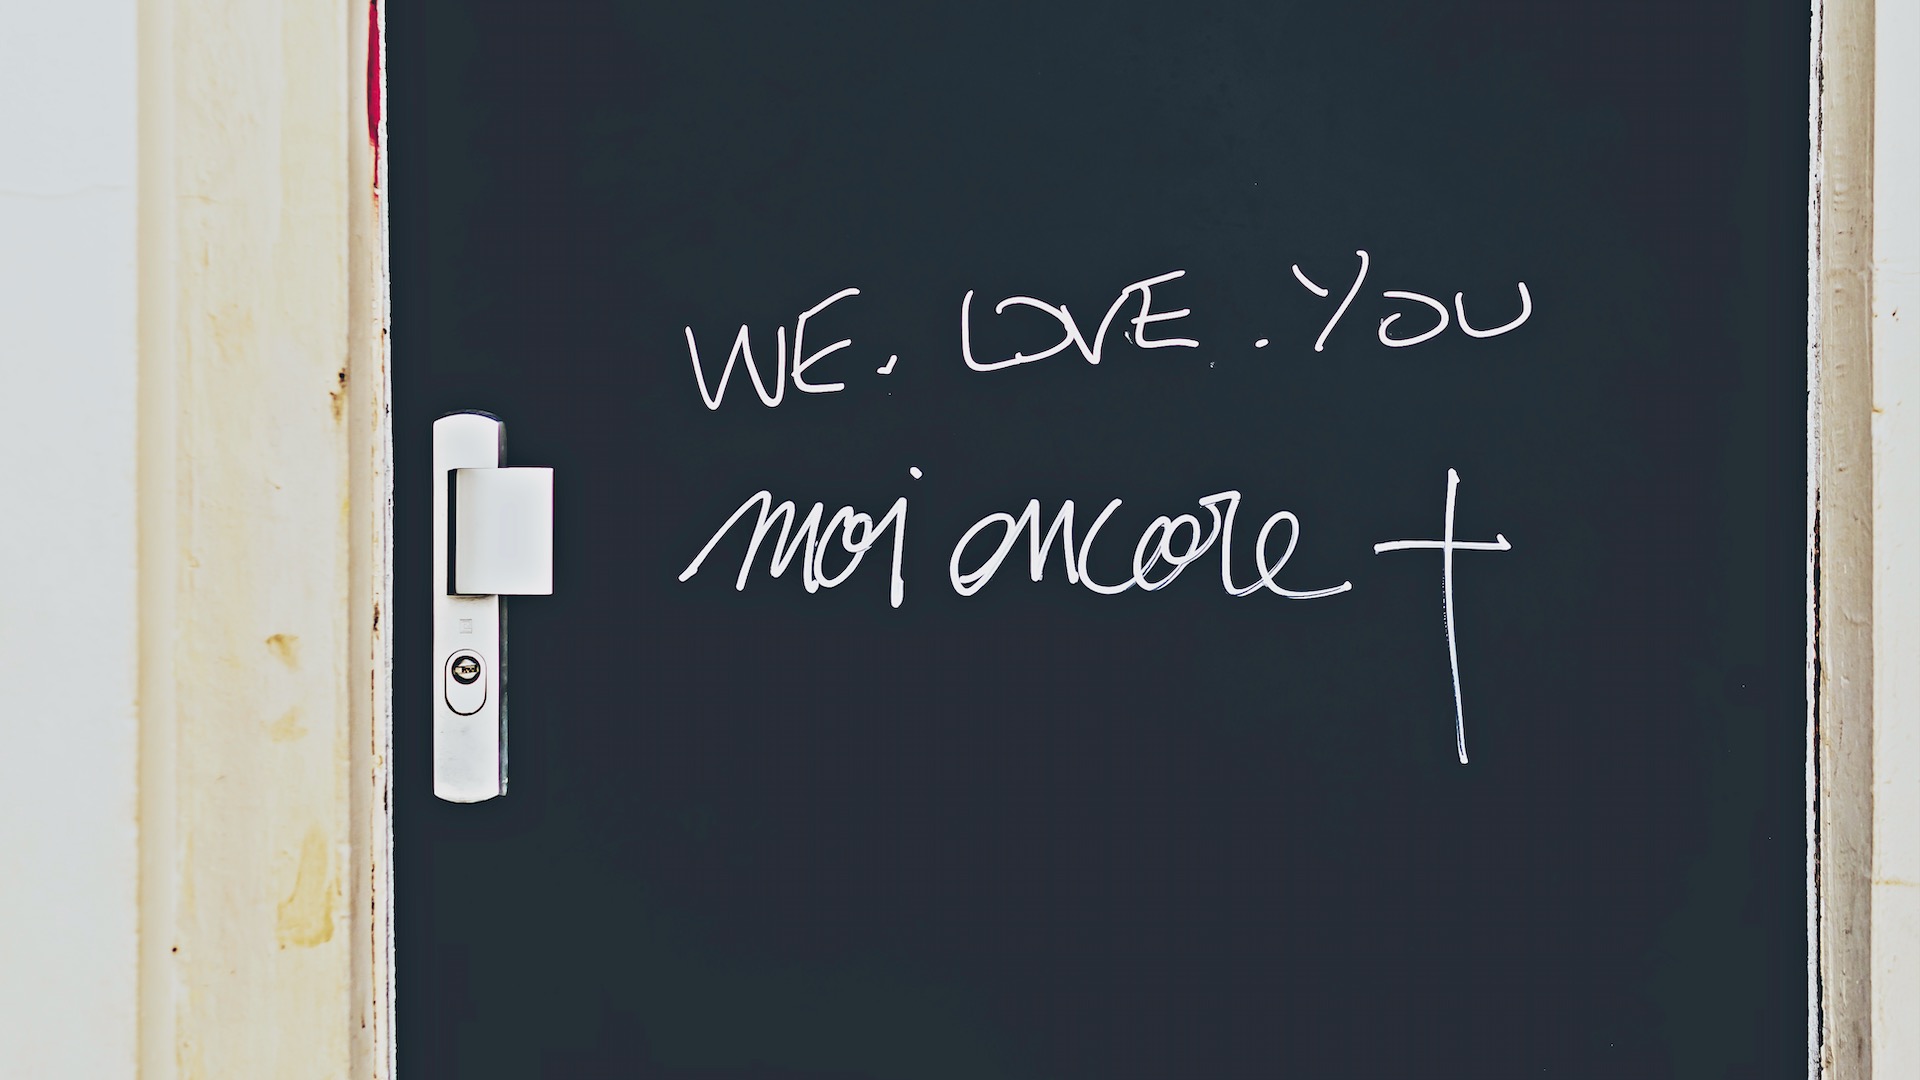 WE. LOVE. YOU
moi encore +